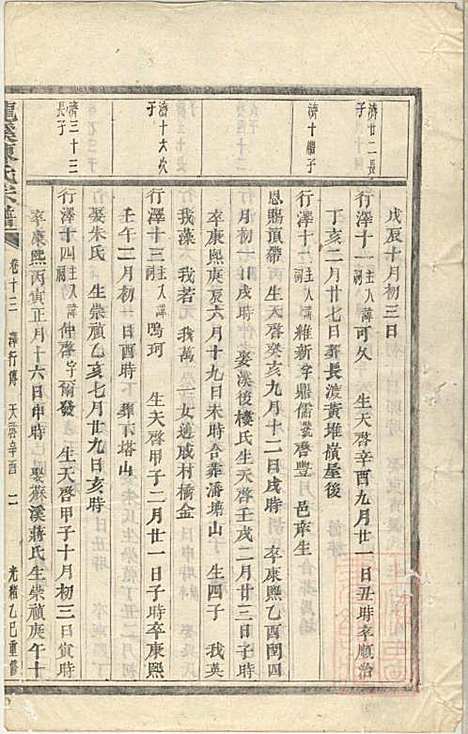 戊辰十月初三日
濟廿二長子
行澤十一主入祠諱可久 生天啓辛酉九月廿一日丑時卒順治
丁亥二月廿七日葬長渡黃堆嶺屋後
濟十繼子
行澤十二主入祠諱維新字鼎儒號啓豐 邑庠生
恩賜頂帶 生天啓癸亥九月十二日戌時 卒康熙乙酉閏四
月初一日戌時 娶溪後樓氏生天啓壬戌二月廿三日子時
卒康熙庚辰六月十九日未時合葬潘塘山 生四子 我英
我藻 我若 我萬 一女適成村橋金
濟十六次子
行澤十三主入祠諱鳴珂 生天啓甲子二月廿一日子時卒康熙
壬午二月初一日酉時 葬下塔山
娶朱氏 生崇禎乙亥七月廿九日亥時
濟三十三長子
行澤十四主入祠諱仲啓字爾發 生天啓甲子十月初三日寅時
卒康熙丙寅正月十六日申時 娶蘇溪蔣氏生崇禎庚午十
宗譜 卷十三 澤行傳 天啓辛酉 二 光緒乙巳重修